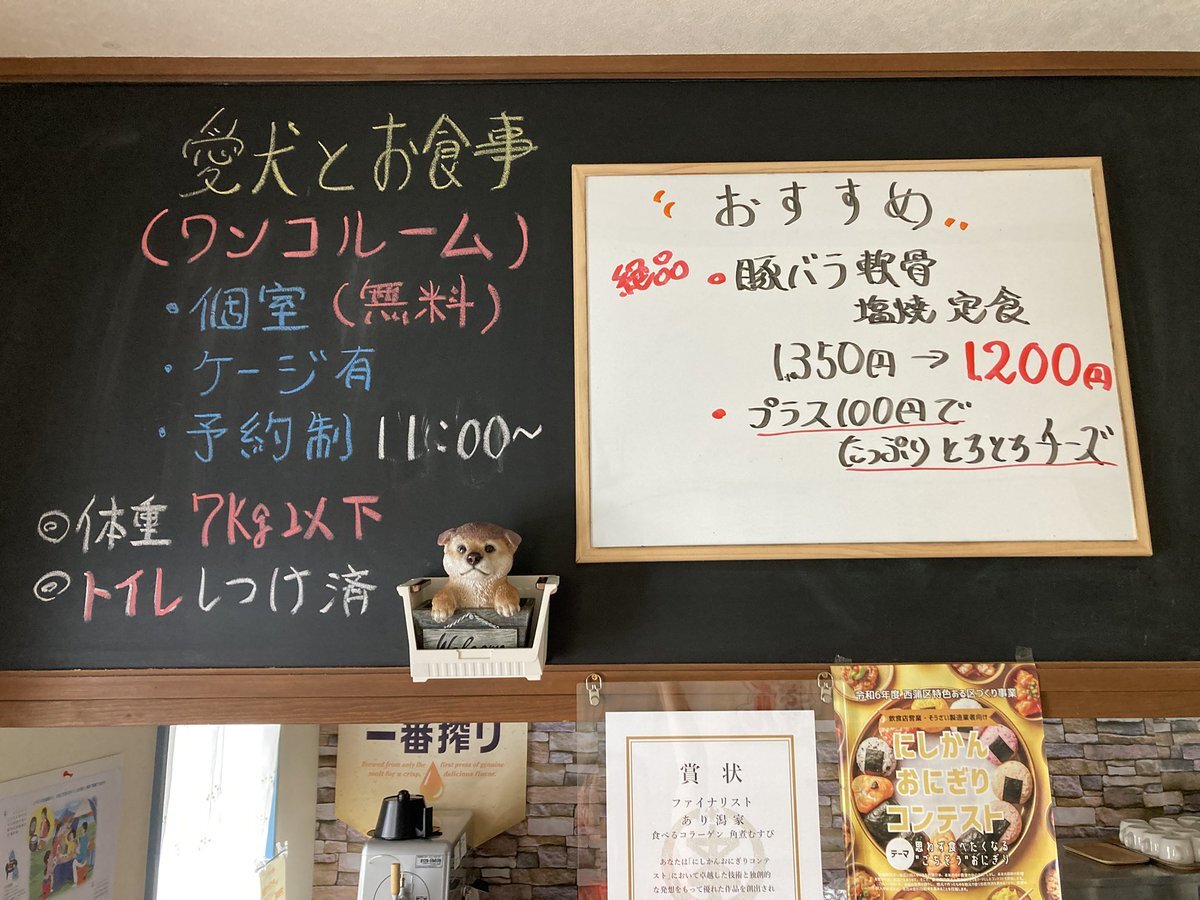 愛犬とお食事
(ワンコルーム)
・個室(無料)
・ケージ有
・予約制 11:00~
◎体重 7Kg以下
◎トイレしつけ済
Welcome
おすすめ
絶品 ・豚バラ軟骨
塩焼 定食
1,350円→1,200円
・プラス100円で
たっぷりとろとろチーズ
一番搾り
Brewed from only the first press of genuine
malt for a crisp, delicious flavor.
賞 状
ファイナリスト
あり潟家
食べるコラーゲン 角煮むすび
あなたは「にしかんおにぎりコンテ
スト」において卓越した技術と独創的
な発想をもって優れた作品を創出され
令和6年度 西蒲区特色ある区づくり事業
飲食店営業・そうざい製造業者向け
にしかん
おにぎり
コンテスト
テーマ
思わず食べたくなる
"ごちそう"おにぎり